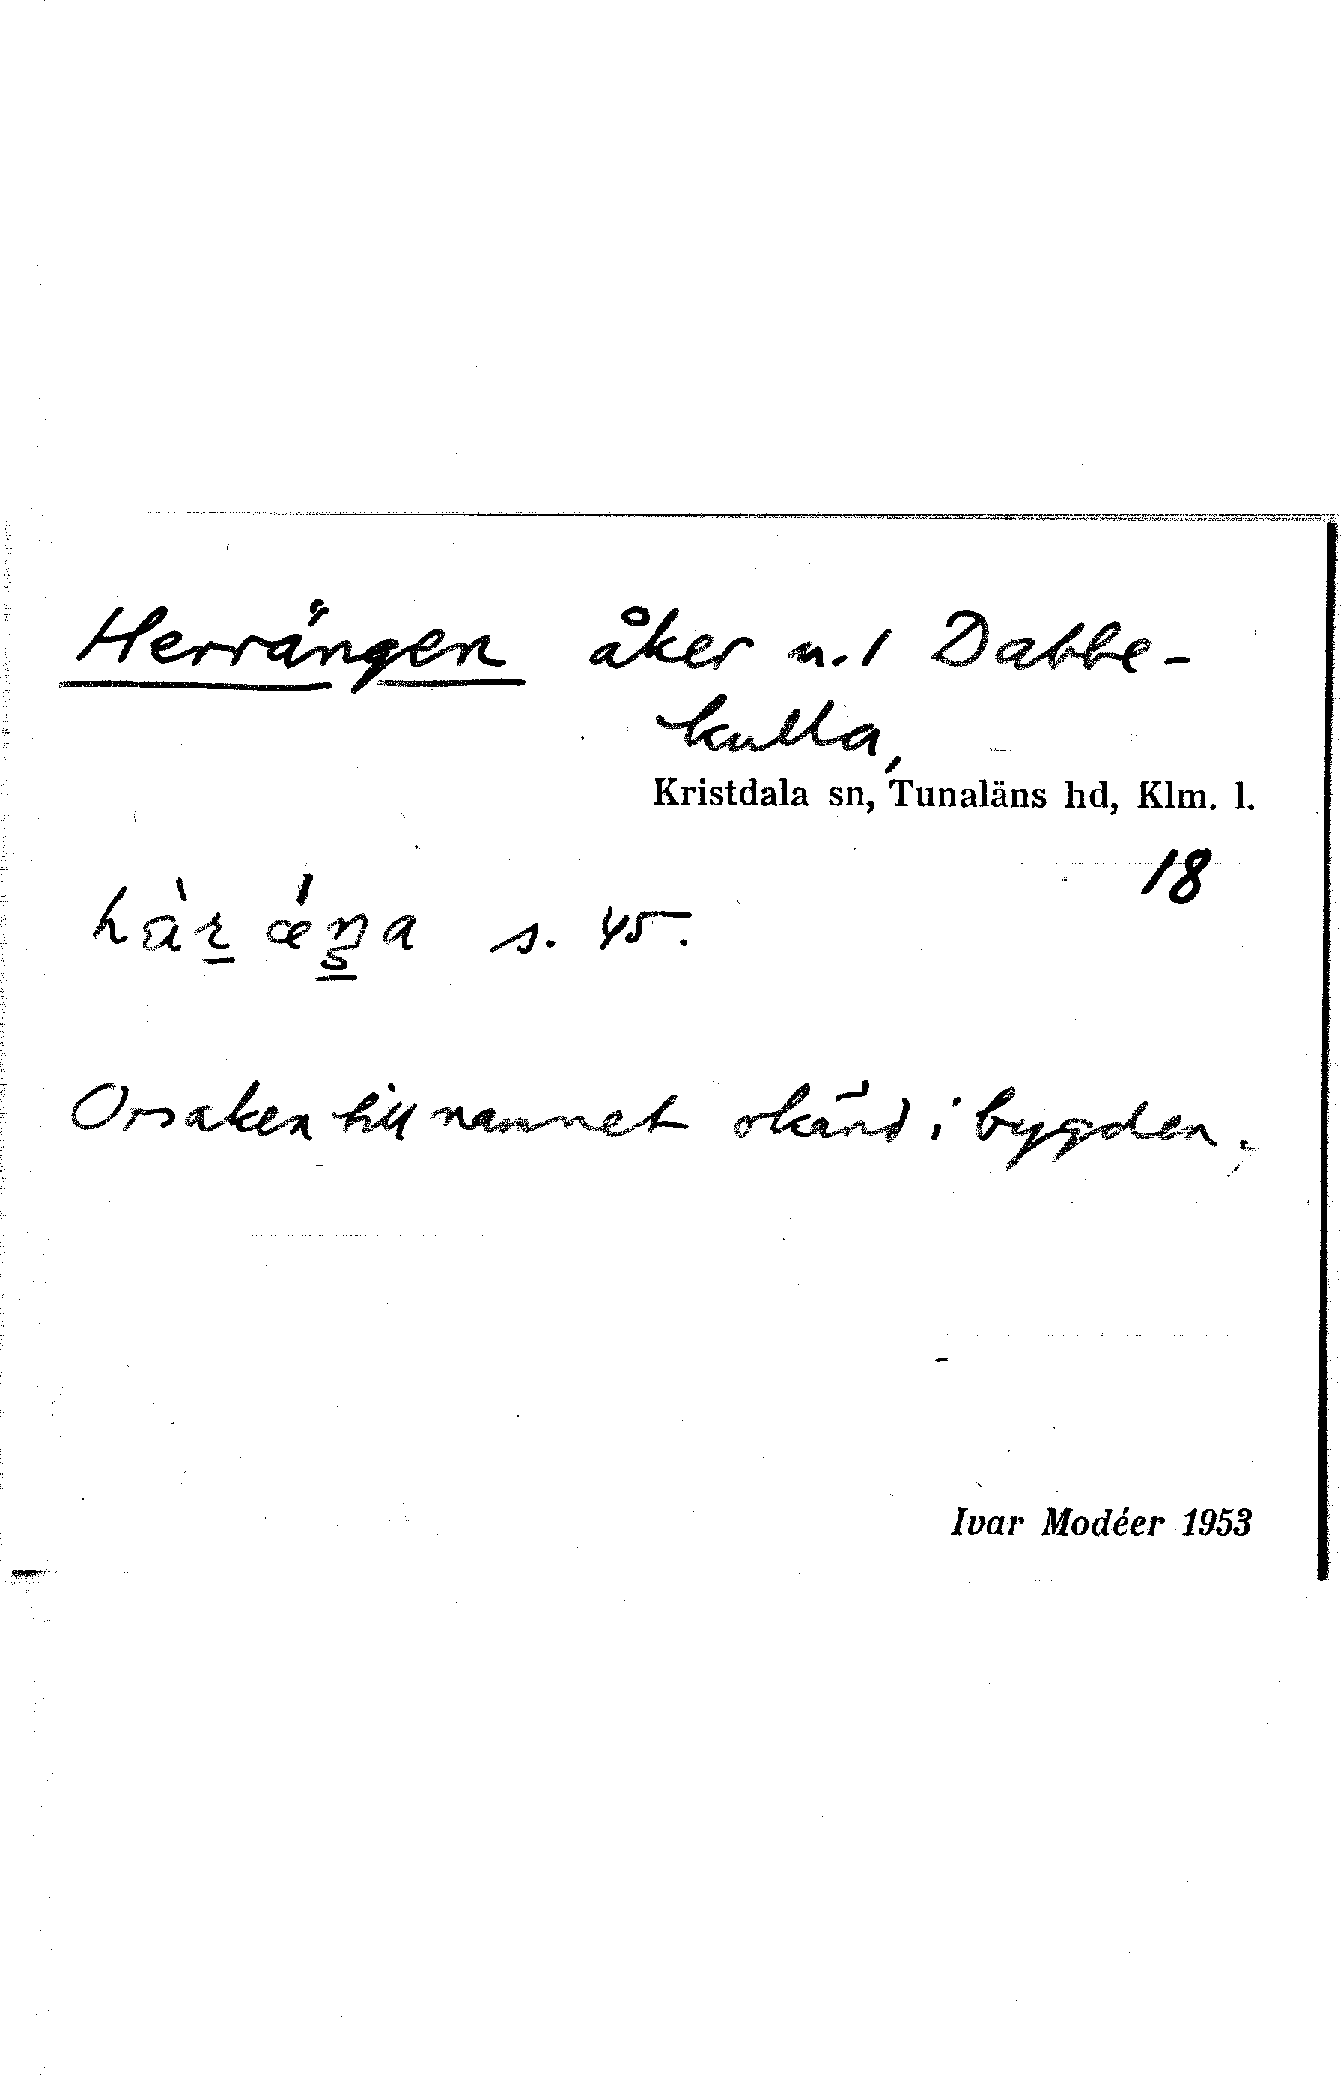 Herrängen åker u.1 Dabbe-
kulla,
Kristdala sn, Tunaläns hd, Klm. l.
18
s. 45.
Orsaken till namnet okänd i bygden.
Ivar Modéer 1953